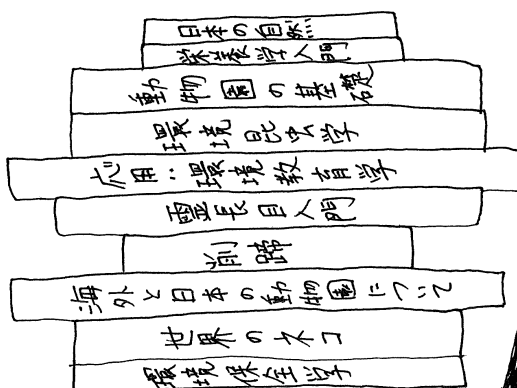 日本の自然
栄養学入門
動物園の基礎
環境昆虫学
応用：環境教育学
霊長目入門
削蹄
海外と日本の動物園について
世界のネコ
環境保全学